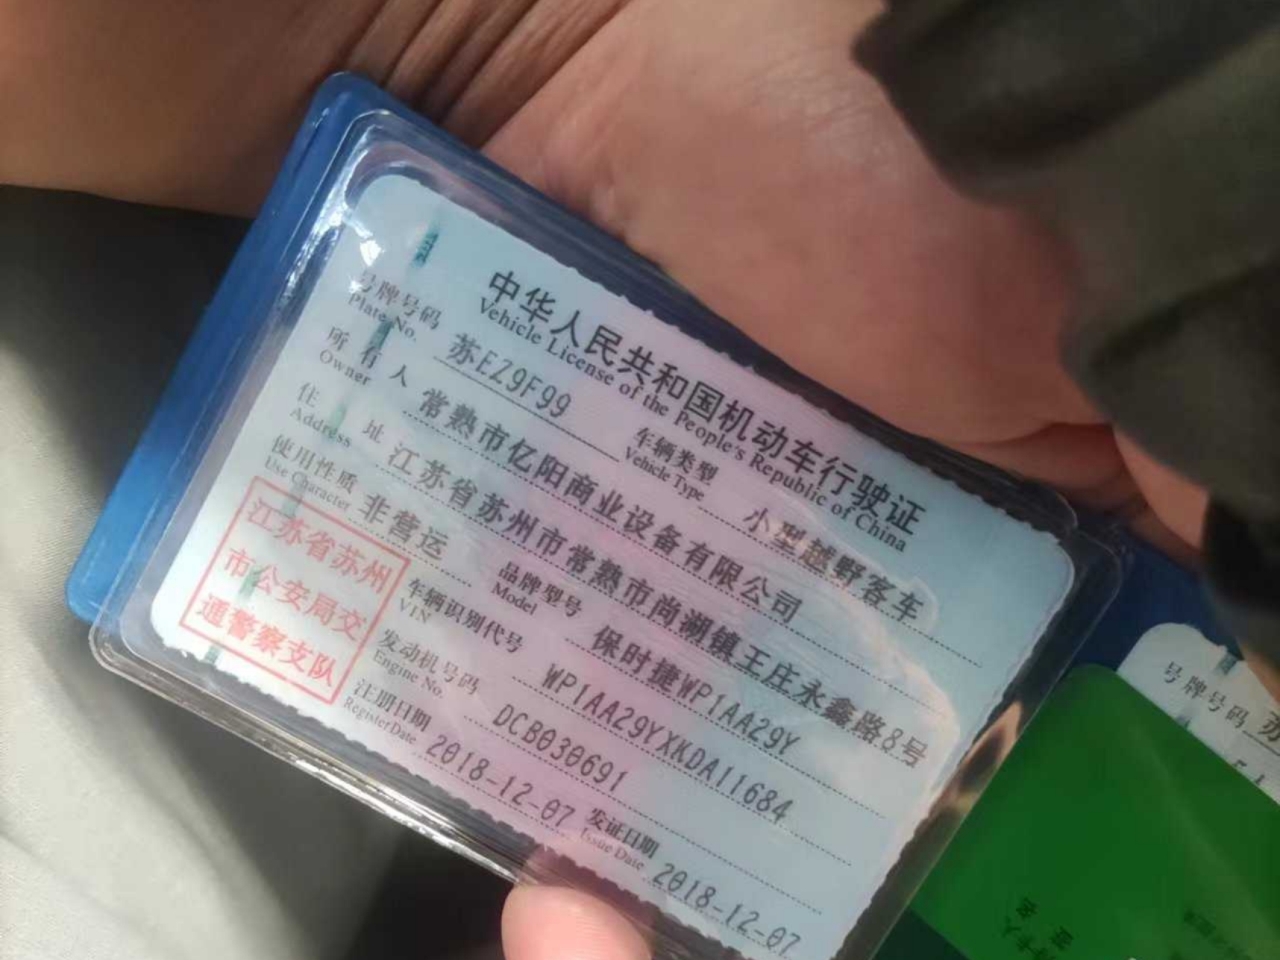 中华人民共和国机动车行驶证
Vehicle License of the People's Republic of China
号牌号码 苏EZ9F99 车辆类型 小型越野客车
Plate No. Vehicle Type
所有人 常熟市亿阳商业设备有限公司
Owner
住址 江苏省苏州市常熟市尚湖镇王庄永鑫路8号
Address
使用性质 非营运 品牌型号 保时捷WP1AA29Y
Use Character Model
车辆识别代号 WP1AA29YXKDA11684
VIN
发动机号码 DCB030691
Engine No.
注册日期 2018-12-07 发证日期 2018-12-07
Register Date Issue Date
江苏省苏州
市公安局交
通警察支队
号牌号码 苏